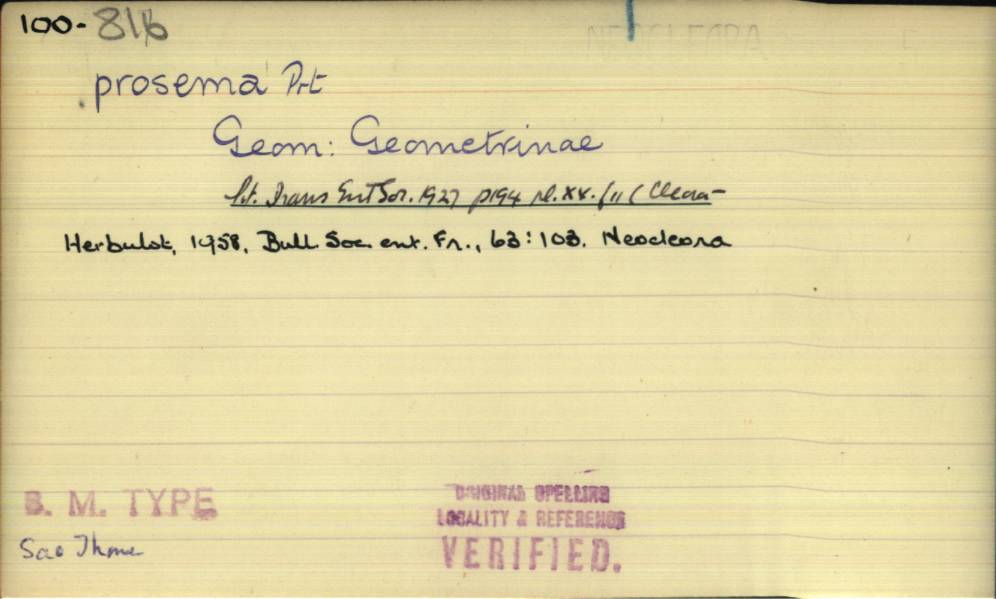 100-816
NEOCLEORA
prosema Prt
Geom: Geometrinae
Trans Ent Soc. 1927 p194 pl. XX. f11 ( Cleora-
Herbulot, 1958, Bull. Soc. ent. Fr., 63:103. Neocleora
B. M. TYPE
Sao Thome
ORIGINAL SPELLING
LOCALITY & REFERENCE
VERIFIED.